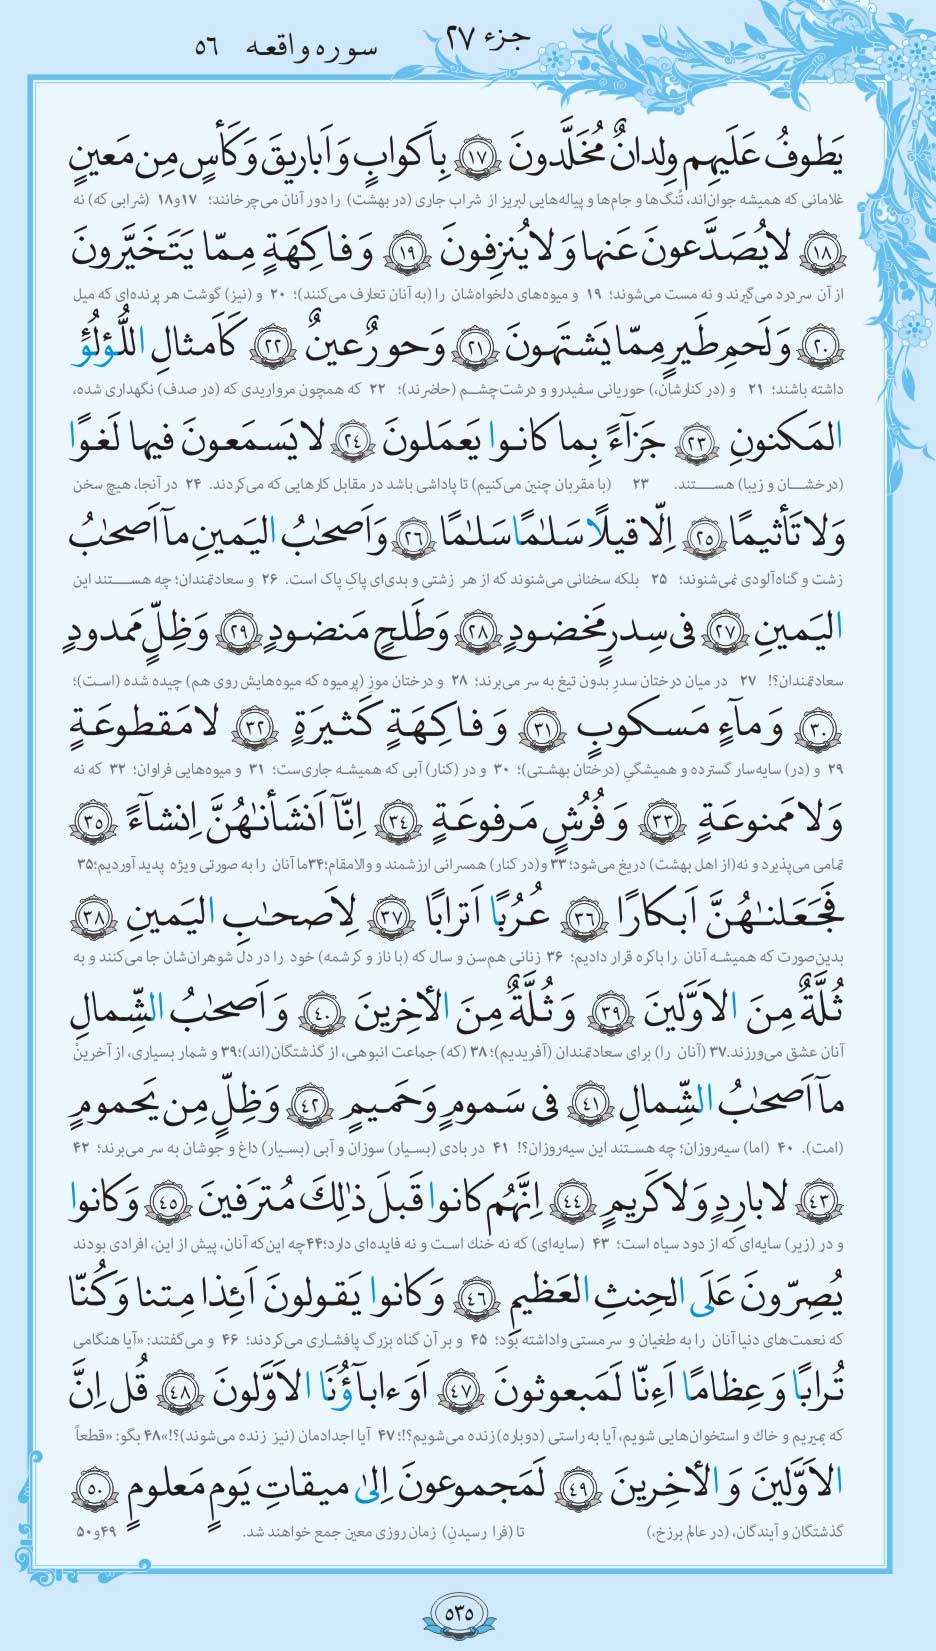 جزء ٢٧
سوره واقعه ٥٦
يَطوفُ عَلَيهِم وِلدانٌ مُخَلَّدونَ ﴿١٧﴾ بِأَكوابٍ وَ اَباريقَ وَ كَأسٍ مِن مَعينٍ
غلامانی که همیشه جوان‌اند، تُنگ‌ها و جام‌ها و پیاله‌هایی لبریز از شراب جاری (در بهشت) را دور آنان می‌چرخانند؛ ١٧و١٨ (شرابی که) نه
﴿١٨﴾ لا يُصَدَّعونَ عَنها وَ لا يُنزِفونَ ﴿١٩﴾ وَ فاكِهَةٍ مِمّا يَتَخَيَّرونَ
از آن سردرد می‌گیرند و نه مست می‌شوند؛ ١٩ و میوه‌های دلخواه‌شان را (به آنان تعارف می‌کنند)؛ ٢٠ و (نیز) گوشت هر پرنده‌ای که میل
﴿٢٠﴾ وَ لَحمِ طَيرٍ مِمّا يَشتَهونَ ﴿٢١﴾ وَ حورٌ عينٌ ﴿٢٢﴾ كَاَمثالِ اللُّؤلُؤِ
داشته باشند؛ ٢١ و (در کنارشان،) حوریانی سفیدرو و درشت‌چشم (حاضرند)؛ ٢٢ که همچون مرواریدی که (در صدف) نگهداری شده،
المَكنونِ ﴿٢٣﴾ جَزآءً بِما كانوا يَعمَلونَ ﴿٢٤﴾ لا يَسمَعونَ فيها لَغوًا
(درخشان و زیبا) هستند. ٢٣ (با مقربان چنین می‌کنیم) تا پاداشی باشد در مقابل کارهایی که می‌کردند. ٢٤ در آنجا، هیچ سخن
وَ لا تَأثيمًا ﴿٢٥﴾ اِلّا قيلًا سَلٰمًا سَلٰمًا ﴿٢٦﴾ وَ اَصحٰبُ اليَمينِ مآ اَصحٰبُ
زشت و گناه‌آلودی نمی‌شنوند؛ ٢٥ بلکه سخنانی می‌شنوند که از هر زشتی و بدی‌ای پاکِ پاک است. ٢٦ و سعادتمندان؛ چه هستند این
اليَمينِ ﴿٢٧﴾ فى سِدرٍ مَخضودٍ ﴿٢٨﴾ وَ طَلحٍ مَنضودٍ ﴿٢٩﴾ وَ ظِلٍّ مَمدودٍ
سعادتمندان؟! ٢٧ در میان درختان سدرِ بدون تیغ به سر می‌برند؛ ٢٨ و درختان موزِ (پرمیوه که میوه‌هایش روی هم) چیده شده (است)؛
﴿٣٠﴾ وَ مآءٍ مَسكوبٍ ﴿٣١﴾ وَ فاكِهَةٍ كَثيرَةٍ ﴿٣٢﴾ لا مَقطوعَةٍ
٢٩ و (در) سایه‌سار گسترده و همیشگیِ (درختان بهشتی)؛ ٣٠ و در (کنار) آبی که همیشه جاری‌ست؛ ٣١ و میوه‌هایی فراوان؛ ٣٢ که نه
وَ لا مَمنوعَةٍ ﴿٣٣﴾ وَ فُرُشٍ مَرفوعَةٍ ﴿٣٤﴾ اِنّآ اَنشَأنٰهُنَّ اِنشآءً ﴿٣٥﴾
تمامی می‌پذیرد و نه (از اهل بهشت) دریغ می‌شود؛ ٣٣ و (در کنار) همسرانی ارزشمند و والامقام؛ ٣٤ ما آنان را به صورتی ویژه پدید آوردیم؛ ٣٥
فَجَعَلنٰهُنَّ اَبكارًا ﴿٣٦﴾ عُرُبًا اَترابًا ﴿٣٧﴾ لِاَصحٰبِ اليَمينِ ﴿٣٨﴾
بدین‌صورت که همیشه آنان را باکره قرار دادیم؛ ٣٦ زنانی هم‌سن و سال که (با ناز و کرشمه) خود را در دل شوهران‌شان جا می‌کنند و به
ثُلَّةٌ مِنَ الاَوَّلينَ ﴿٣٩﴾ وَ ثُلَّةٌ مِنَ الأخِرينَ ﴿٤٠﴾ وَ اَصحٰبُ الشِّمالِ
آنان عشق می‌ورزند. ٣٧ (آنان را) برای سعادتمندان (آفریدیم)؛ ٣٨ (که) جماعت انبوهی، از گذشتگان(اند)؛ ٣٩ و شمار بسیاری، از آخرینْ
مآ اَصحٰبُ الشِّمالِ ﴿٤١﴾ فى سَمومٍ وَ حَميمٍ ﴿٤٢﴾ وَ ظِلٍّ مِن يَحمومٍ
(امت). ٤٠ (اما) سیه‌روزان؛ چه هستند این سیه‌روزان؟! ٤١ در بادی (بسیار) سوزان و آبی (بسیار) داغ و جوشان به سر می‌برند؛ ٤٢
﴿٤٣﴾ لا بارِدٍ وَ لا كَريمٍ ﴿٤٤﴾ اِنَّهُم كانوا قَبلَ ذٰلِكَ مُترَفينَ ﴿٤٥﴾ وَ كانوا
و در (زیر) سایه‌ای که از دود سیاه است؛ ٤٣ (سایه‌ای) که نه خنک است و نه فایده‌ای دارد؛ ٤٤ چه این‌که آنان، پیش از این، افرادی بودند
يُصِرّونَ عَلَى الحِنثِ العَظيمِ ﴿٤٦﴾ وَ كانوا يَقولونَ اَئِذا مِتنا وَ كُنّا
که نعمت‌های دنیا آنان را به طغیان و سرمستی واداشته بود؛ ٤٥ و بر آن گناه بزرگ پافشاری می‌کردند؛ ٤٦ و می‌گفتند: «آیا هنگامی
تُرابًا وَ عِظامًا اَءِنّا لَمَبعوثونَ ﴿٤٧﴾ اَوَءابآؤُنَا الاَوَّلونَ ﴿٤٨﴾ قُل اِنَّ
که بمیریم و خاک و استخوان‌هایی شویم، آیا به راستی (دوباره) زنده می‌شویم؟!؛ ٤٧ آیا اجدادمان (نیز زنده می‌شوند)؟!» ٤٨ بگو: «قطعاً
الاَوَّلينَ وَ الأخِرينَ ﴿٤٩﴾ لَمَجموعونَ اِلىٰ ميقاتِ يَومٍ مَعلومٍ ﴿٥٠﴾
گذشتگان و آیندگان، (در عالم برزخ،) تا (فرا رسیدنِ) زمان روزی معین جمع خواهند شد. ٤٩و٥٠
٥٣٥